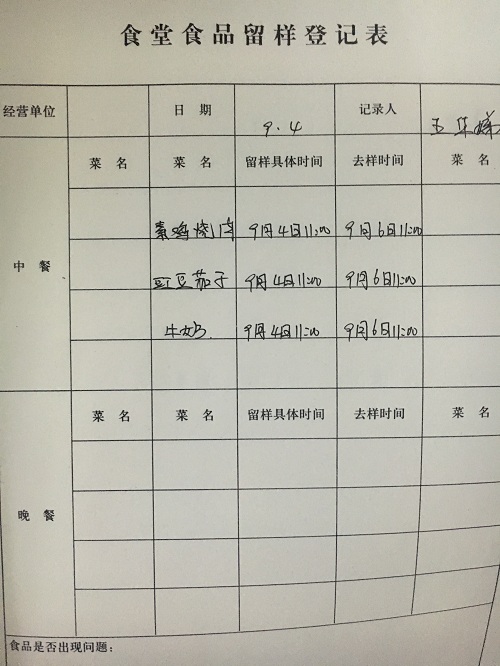 食堂食品留样登记表
经营单位 日 期 9.4 记录人
菜 名 菜 名 留样具体时间 去样时间 菜 名
中 餐
素鸡烧肉 9月4日11:00 9月6日11:00
豇豆茄子 9月4日11:00 9月6日11:00
牛奶 9月4日11:00 9月6日11:00
菜 名 菜 名 留样具体时间 去样时间 菜 名
晚 餐
食品是否出现问题: